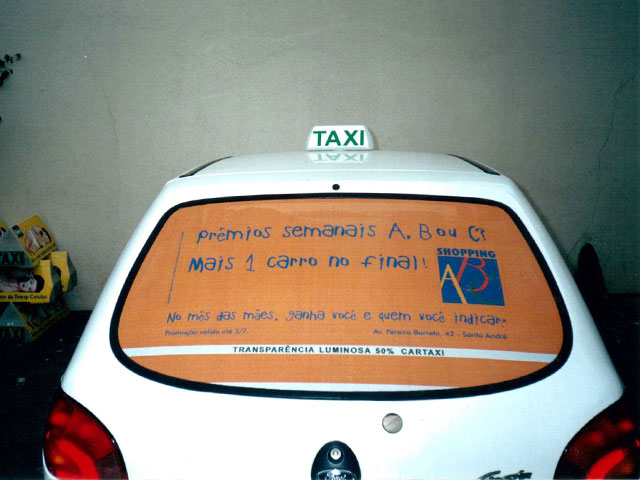 TAXI
Prêmios semanais A, B ou C?
Mais 1 carro no final!
SHOPPING
AB
No mês das mães, ganha você e quem você indicar.
Promoção válida até 3/7.
Av. Pereira Barreto, 42 - Santo André
TRANSPARÊNCIA LUMINOSA 50% CARTAXI
TAXI
Ford